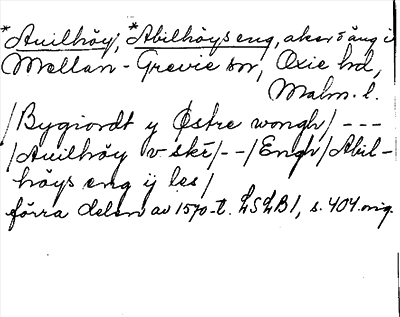 *Auilhöy, *Abilhöys eng, aker o äng i
Mellan-Grevie sn, Oxie hd,
Malm. l.
/Bygiordt y Østre wongh/ ---
/Auilhöy v ské/--/Engh/Abil-
höys eng ij les/
förra delen av 1570-t. LSLB1, s. 404 orig.